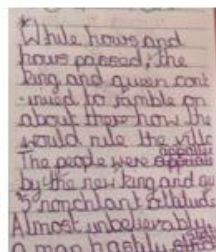 While hours and
hours passed, the
king and queen cont
-inued to ramble on
about there how the
would rule the villa
The people were
by the new king and qu
's nonchlant attitude
Almost unbelievably
a man hastily